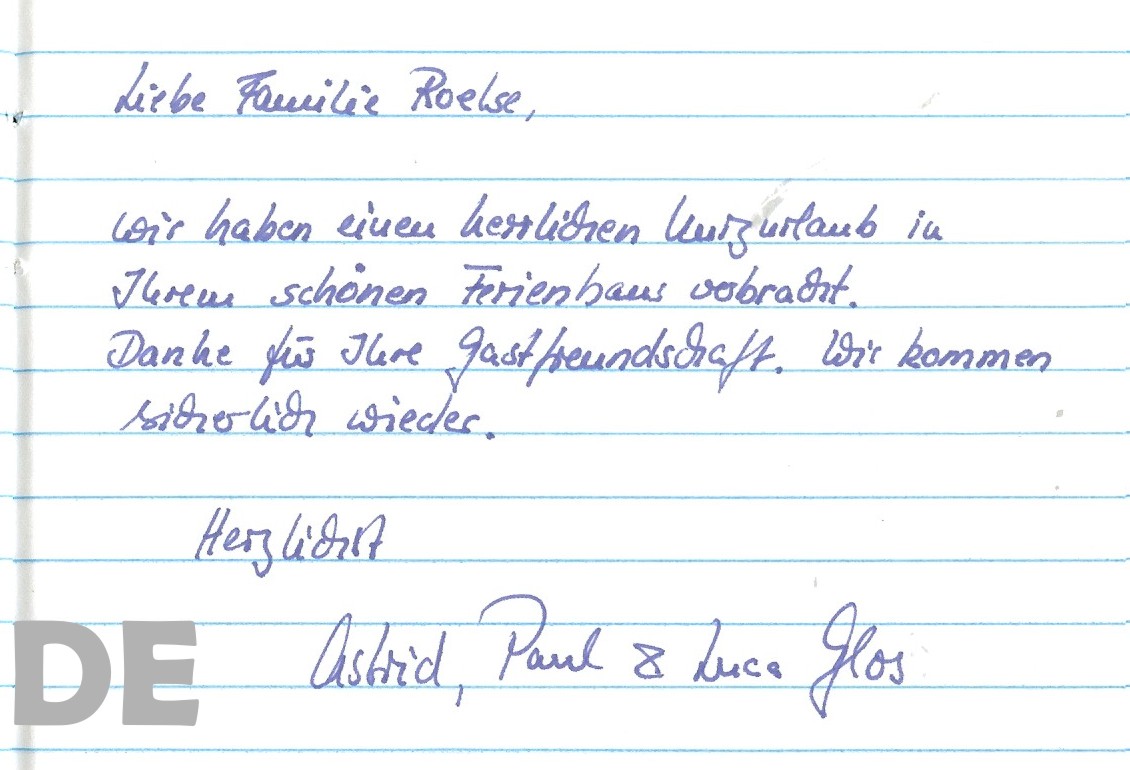 Liebe Familie Roelse,
wir haben einen herrlichen Kurzurlaub in
Ihrem schönen Ferienhaus verbracht.
Danke für Ihre Gastfreundschaft. Wir kommen
sicherlich wieder.
Herzlichst
Astrid, Paul & Luca Glos
DE